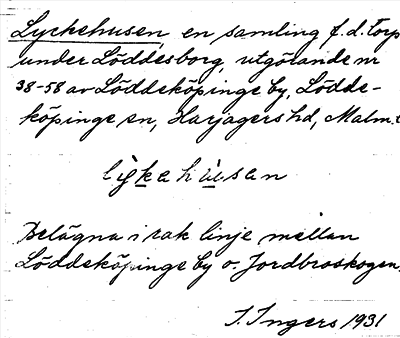 Lyckehusen, en samling f.d. torp
under Löddesborg, utgörande nr
38-58 av Löddeköpinge by, Lödde-
köpinge sn, Harjagers hd, Malm.
lykehusan
Belägna i rak linje mellan
Löddeköpinge by o. Jordbroskogen.
I. Ingers 1931